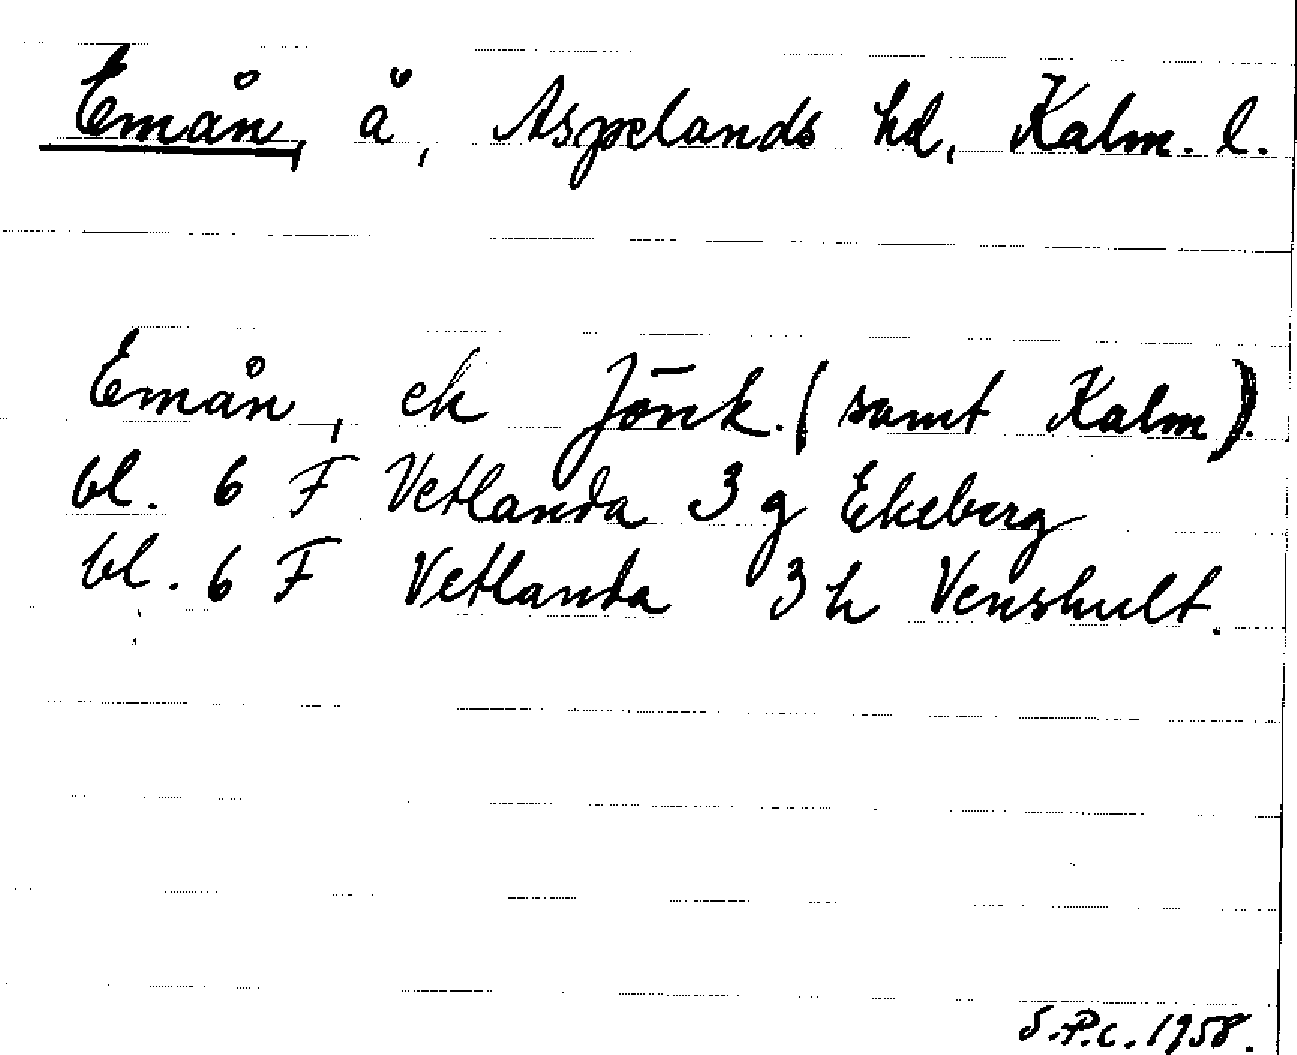 Emån, å, Aspelands hd, Kalm. l.
Emån, ek Jönk. (samt Kalm).
bl. 6 F Vetlanda 3 g Ekeberg
bl. 6 F Vetlanda 3 h Venshult.
S.P.C. 1958.